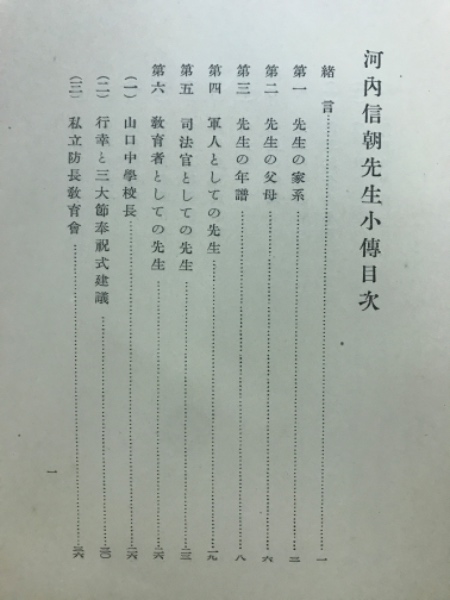 河內信朝先生小傳目次
緖言……一
第一 先生の家系……二
第二 先生の父母……六
第三 先生の年譜……八
第四 軍人としての先生……一九
第五 司法官としての先生……二三
第六 敎育者としての先生……二六
(一) 山口中學校長……二六
(二) 行幸と三大節奉祝式建議……三〇
(三) 私立防長敎育會……三六
一